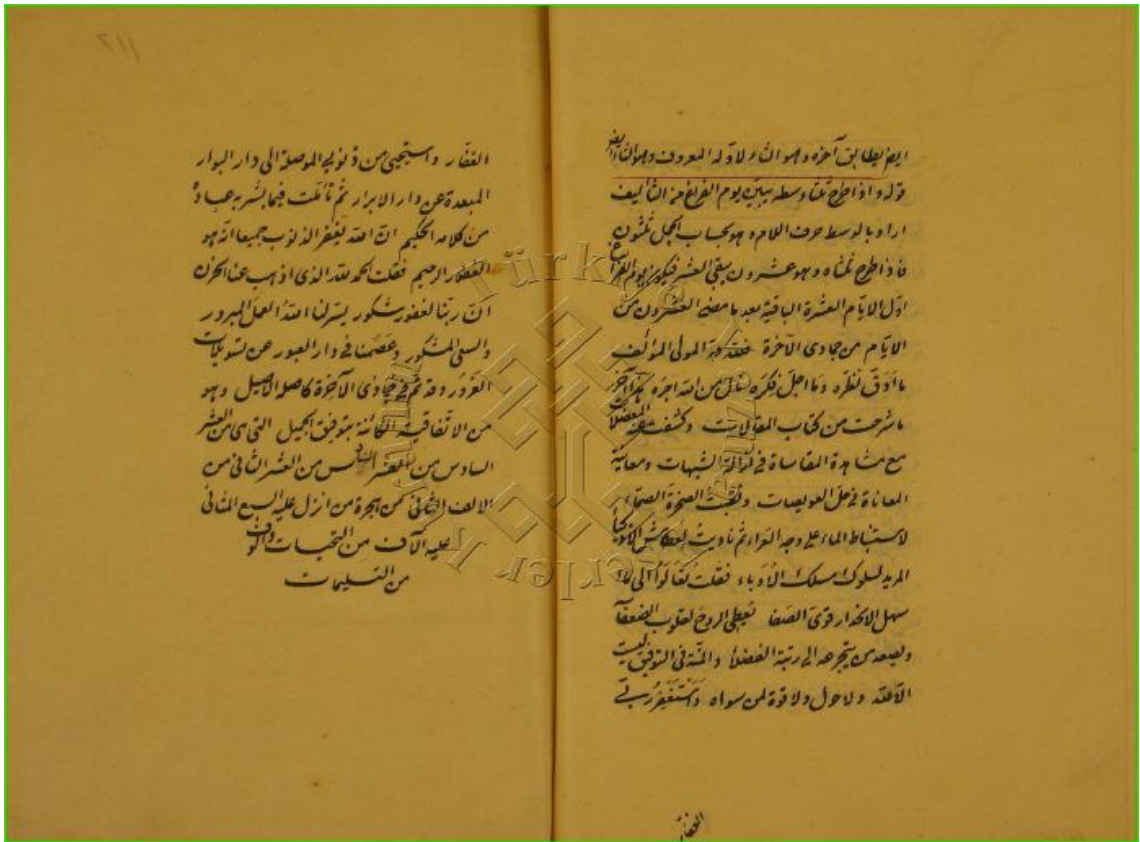 ايضا يطابق آخره وهو التاء لاوله المعروف وهو التاء ايضا
قوله و اذا طرح ثلثا وسطه يبين يوم الفراغ من التأليف
اراد بالوسط حرف اللام وهو بحساب الجمل ثلثون
فاذا طرح ثلثاه وهو عشرون يبقى العشر فيكون يوم الفراغ
اول الايام العشرة الباقية بعد ما مضى العشرون من
الايام من جمادى الآخرة فلله در المولى المؤلف
ما ادق نظره وما اجل فكره نال من الله اجره هذا آخر
ما شرحت من كتاب المقولات وكشفت عنه المعضلات
مع مشاهدة المقاساة في ازالة الشبهات ومعاينة
المعاناة في حل العويصات ونقبت الصخرة الصماء
لاستنباط الماء على وجه ثم ناديت لعطاش
المريد لسلوك مسلك الادباء فقلت تعالوا الى ماء
سهل الانحدار قوى الصفا يعطى الروح لقلوب الضعفاء
ويصعد من يتجرعه الى رتبة الفضلاء والمنة في التوفيق ليست
الا لله ولا حول ولا قوة لمن سواه واستغفر ربى
الغفار
٢١١
الغفار واستحيى من ذنوبى الموصلة الى دار البوار
المبعدة عن دار الابرار ثم تأملت فيما بشر به عباده
من كلامه الحكيم ان الله يغفر الذنوب جميعا انه هو
الغفار الرحيم فقلت الحمد لله الذى اذهب عنا الحزن
ان ربنا لغفور شكور يسر لنا الله العمل المبرور
والسعى المشكور وعصمنا في دار العبور عن تسويلات
الغرور وقد تم في جمادى الآخرة كاصله الاصيل وهو
من الاتفاقية الكائنة بتوفيق الجميل التى من العشر
السادس من العشر السادس من العشر الثانى من
الالف الثانى من هجرة من انزل عليه السبع المثانى
عليه الآف من التحيات والوف
من التسليمات
Türkiye Yazma Eserler K